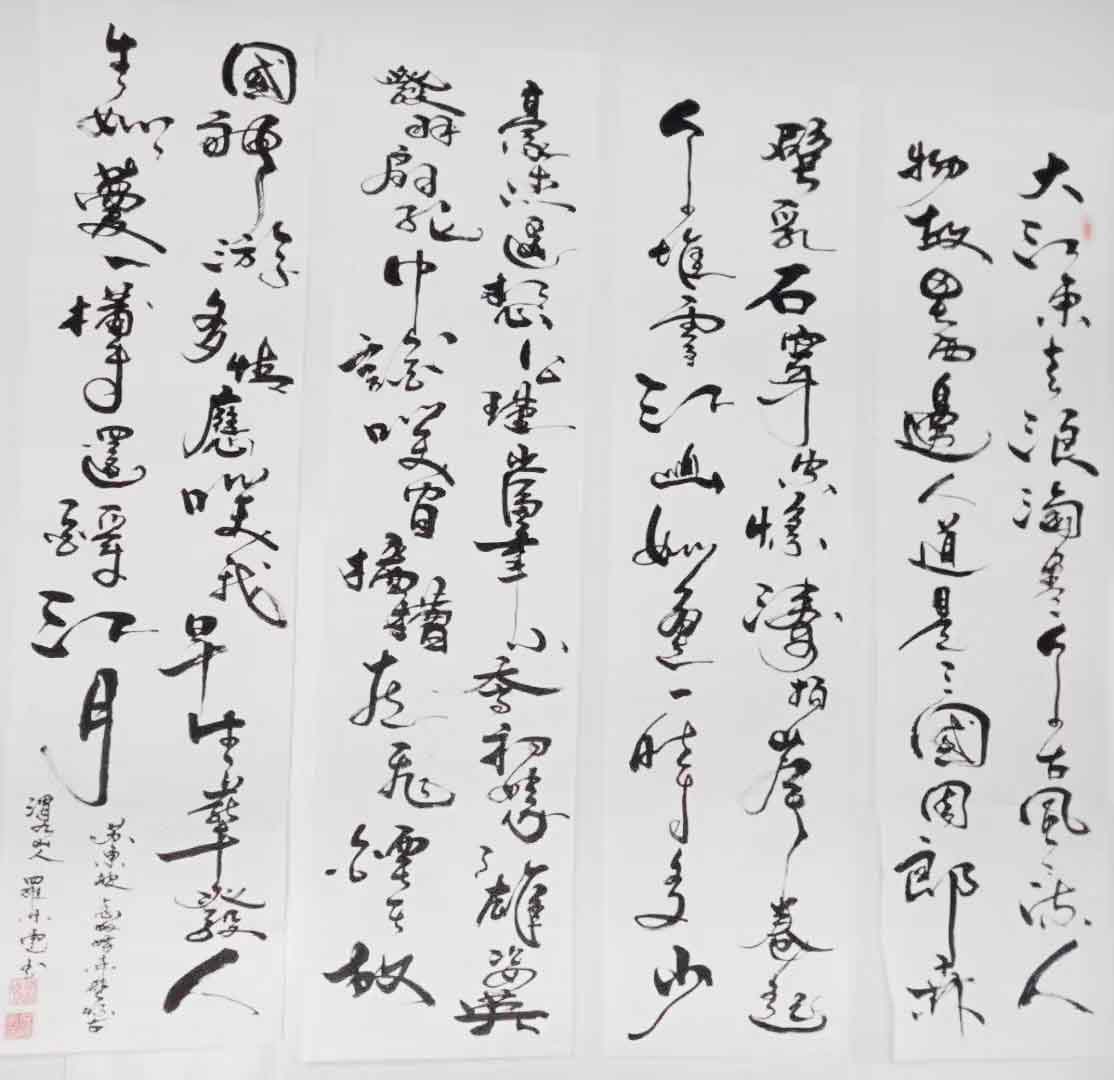 大江東去浪淘盡千古風流人
物故壘西邊人道是三國周郎赤
壁乱石穿空驚濤拍岸卷起
千堆雪江山如畫一時多少
豪傑遥想公瑾當年小喬初嫁了雄姿英
發羽扇綸巾談笑間檣櫓灰飛煙滅故
國神游多情應笑我早生華發人
生如夢一樽還酹江月
蘇東坡念奴嬌赤壁懷古
山人羅書